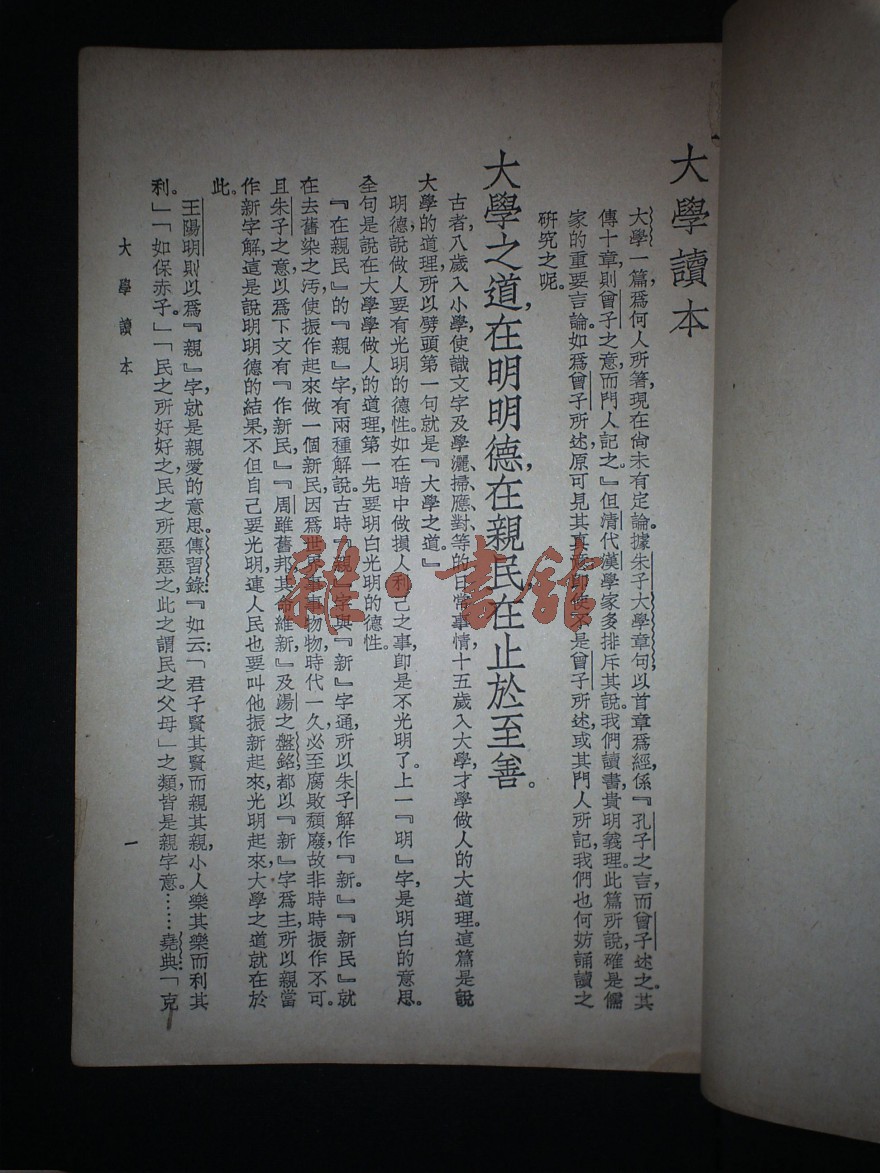 大學讀本
大學一篇，爲何人所箸，現在尙未有定論。據朱子大學章句，以首章爲經，係『孔子之言，而曾子述之。其
傳十章，則曾子之意，而門人記之。』但清代漢學家多排斥其說。我們讀書，貴明義理。此篇所說，確是儒
家的重要言論。如爲曾子所述，原可見其眞意，卽使不是曾子所述，或其門人所記，我們也何妨誦讀之
研究之呢。
大學之道，在明明德，在親民，在止於至善。
古者，八歲入小學，使識文字及學灑、掃、應、對、等的日常事情，十五歲入大學，才學做人的大道理。這篇是說
大學的道理，所以劈頭第一句就是『大學之道。』
明德，說做人要有光明的德性。如在暗中做損人利己之事，卽是不光明了。上一『明』字，是明白的意思。
全句是說在大學學做人的道理，第一先要明白光明的德性。
『在親民』的『親』字，有兩種解說。古時『親』字與『新』字通，所以朱子解作『新。』『新民』就
在去舊染之汚，使振作起來，做一個新民，因爲世界事事物物，時代一久，必至腐敗頹廢，故非時時振作不可。
且朱子之意，以爲下文有『作新民』『周雖舊邦，其命維新』及湯之盤銘，都以『新』字爲主，所以親當
作新字解，這是說明明德的結果，不但自己要光明，連人民也要叫他振新起來，光明起來，大學之道就在於
此。
王陽明則以爲『親』字就是親愛的意思。傳習錄：『如云：「君子賢其賢而親其親，小人樂其樂而利其
利。」「如保赤子。」「民之所好好之，民之所惡惡之，此之謂民之父母」之類，皆是親字意。……堯典：「克
大學讀本
一
雜·書館